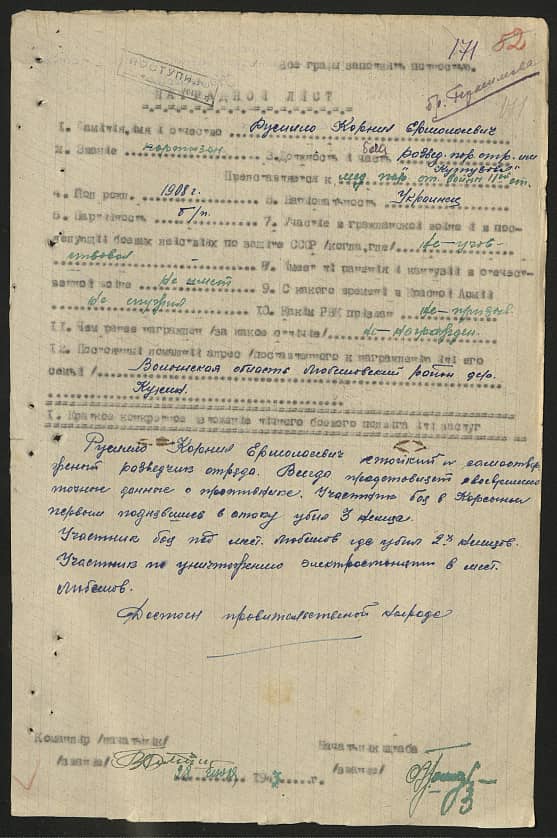 171 52
Все графы заполнять полностью.
ПОСТУПИЛО
НАГРАДНОЙ ЛИСТ
1. Фамилия, имя и отчество Русмило Корнил Ермолаевич
2. Звание партизан 3. Должность и часть боец развед. пар. отр. им. Кутузова
Представляется к мед. пар. от. войны II ой ст.
4. Год рожд. 1908 г. 5. Национальность Украинец
6. Партийность б/п. 7. Участие в гражданской войне и пос-
ледующих боевых действиях по защите СССР /когда, где/ Не-учас-
твовал 8. Имеет ли ранения и контузии в отечест-
венной войне Не имеет 9. С какого времени в Красной Армии
Не служил 10. Каким РВК призван Не-призыв.
11. Чем ранее награжден /за какое отличие/ Не-награжден.
12. Постоянный домашний адрес /поставленного к награждению или его
семьи/ Волынская область Любешовский район дер.
I. Краткое конкретное изложение личного боевого подвига или заслуг
Русмило Корнил Ермолаевич стойкий и самоотвер
женый разведчик отряда. Всегда предоставляет своевременно
точные данные о противнике. Участник боя в
первым поднявшись в атаку убил 3 немца.
Участник боя под мест. Любешов где убил 2х немцов.
Участник по уничтожению электростанции в мест.
Любешов.
Достоин правительственой награде
Командир /начальник/ Начальник штаба
/звание/ /звание/
28 1943 г.